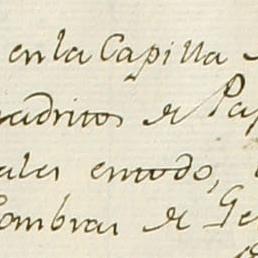 en la Capilla
uadritos de Pap
ales en todo,
Sombras de Ge